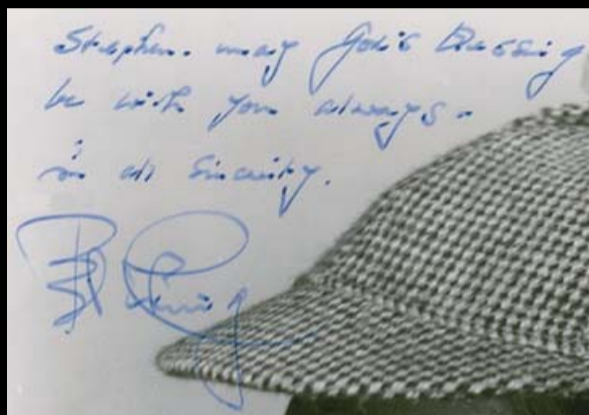 Stephen. may God's Blessing
be with you always.
in all Sincerity.